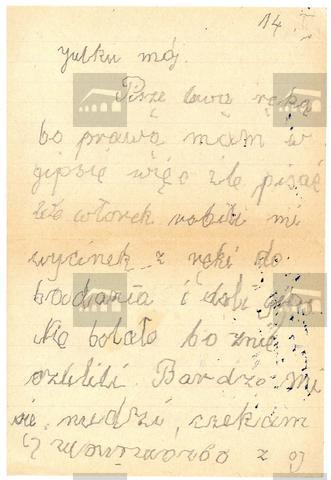 14
Julku mój.
Piszę lewą ręką
bo prawą mam w
gipsie więc źle pisać
We wtorek robili mi
wycinek z ręki do
badania i dali gips
Nie bolało bo znie
czulili. Bardzo mi
się nudzi, czekam
z